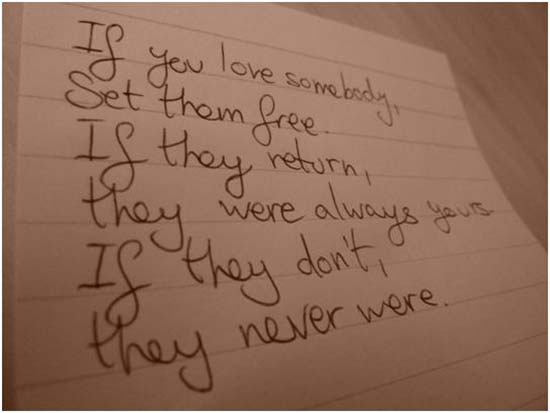 If you love somebody,
Set them free.
If they return,
they were always yours
If they don't,
they never were.